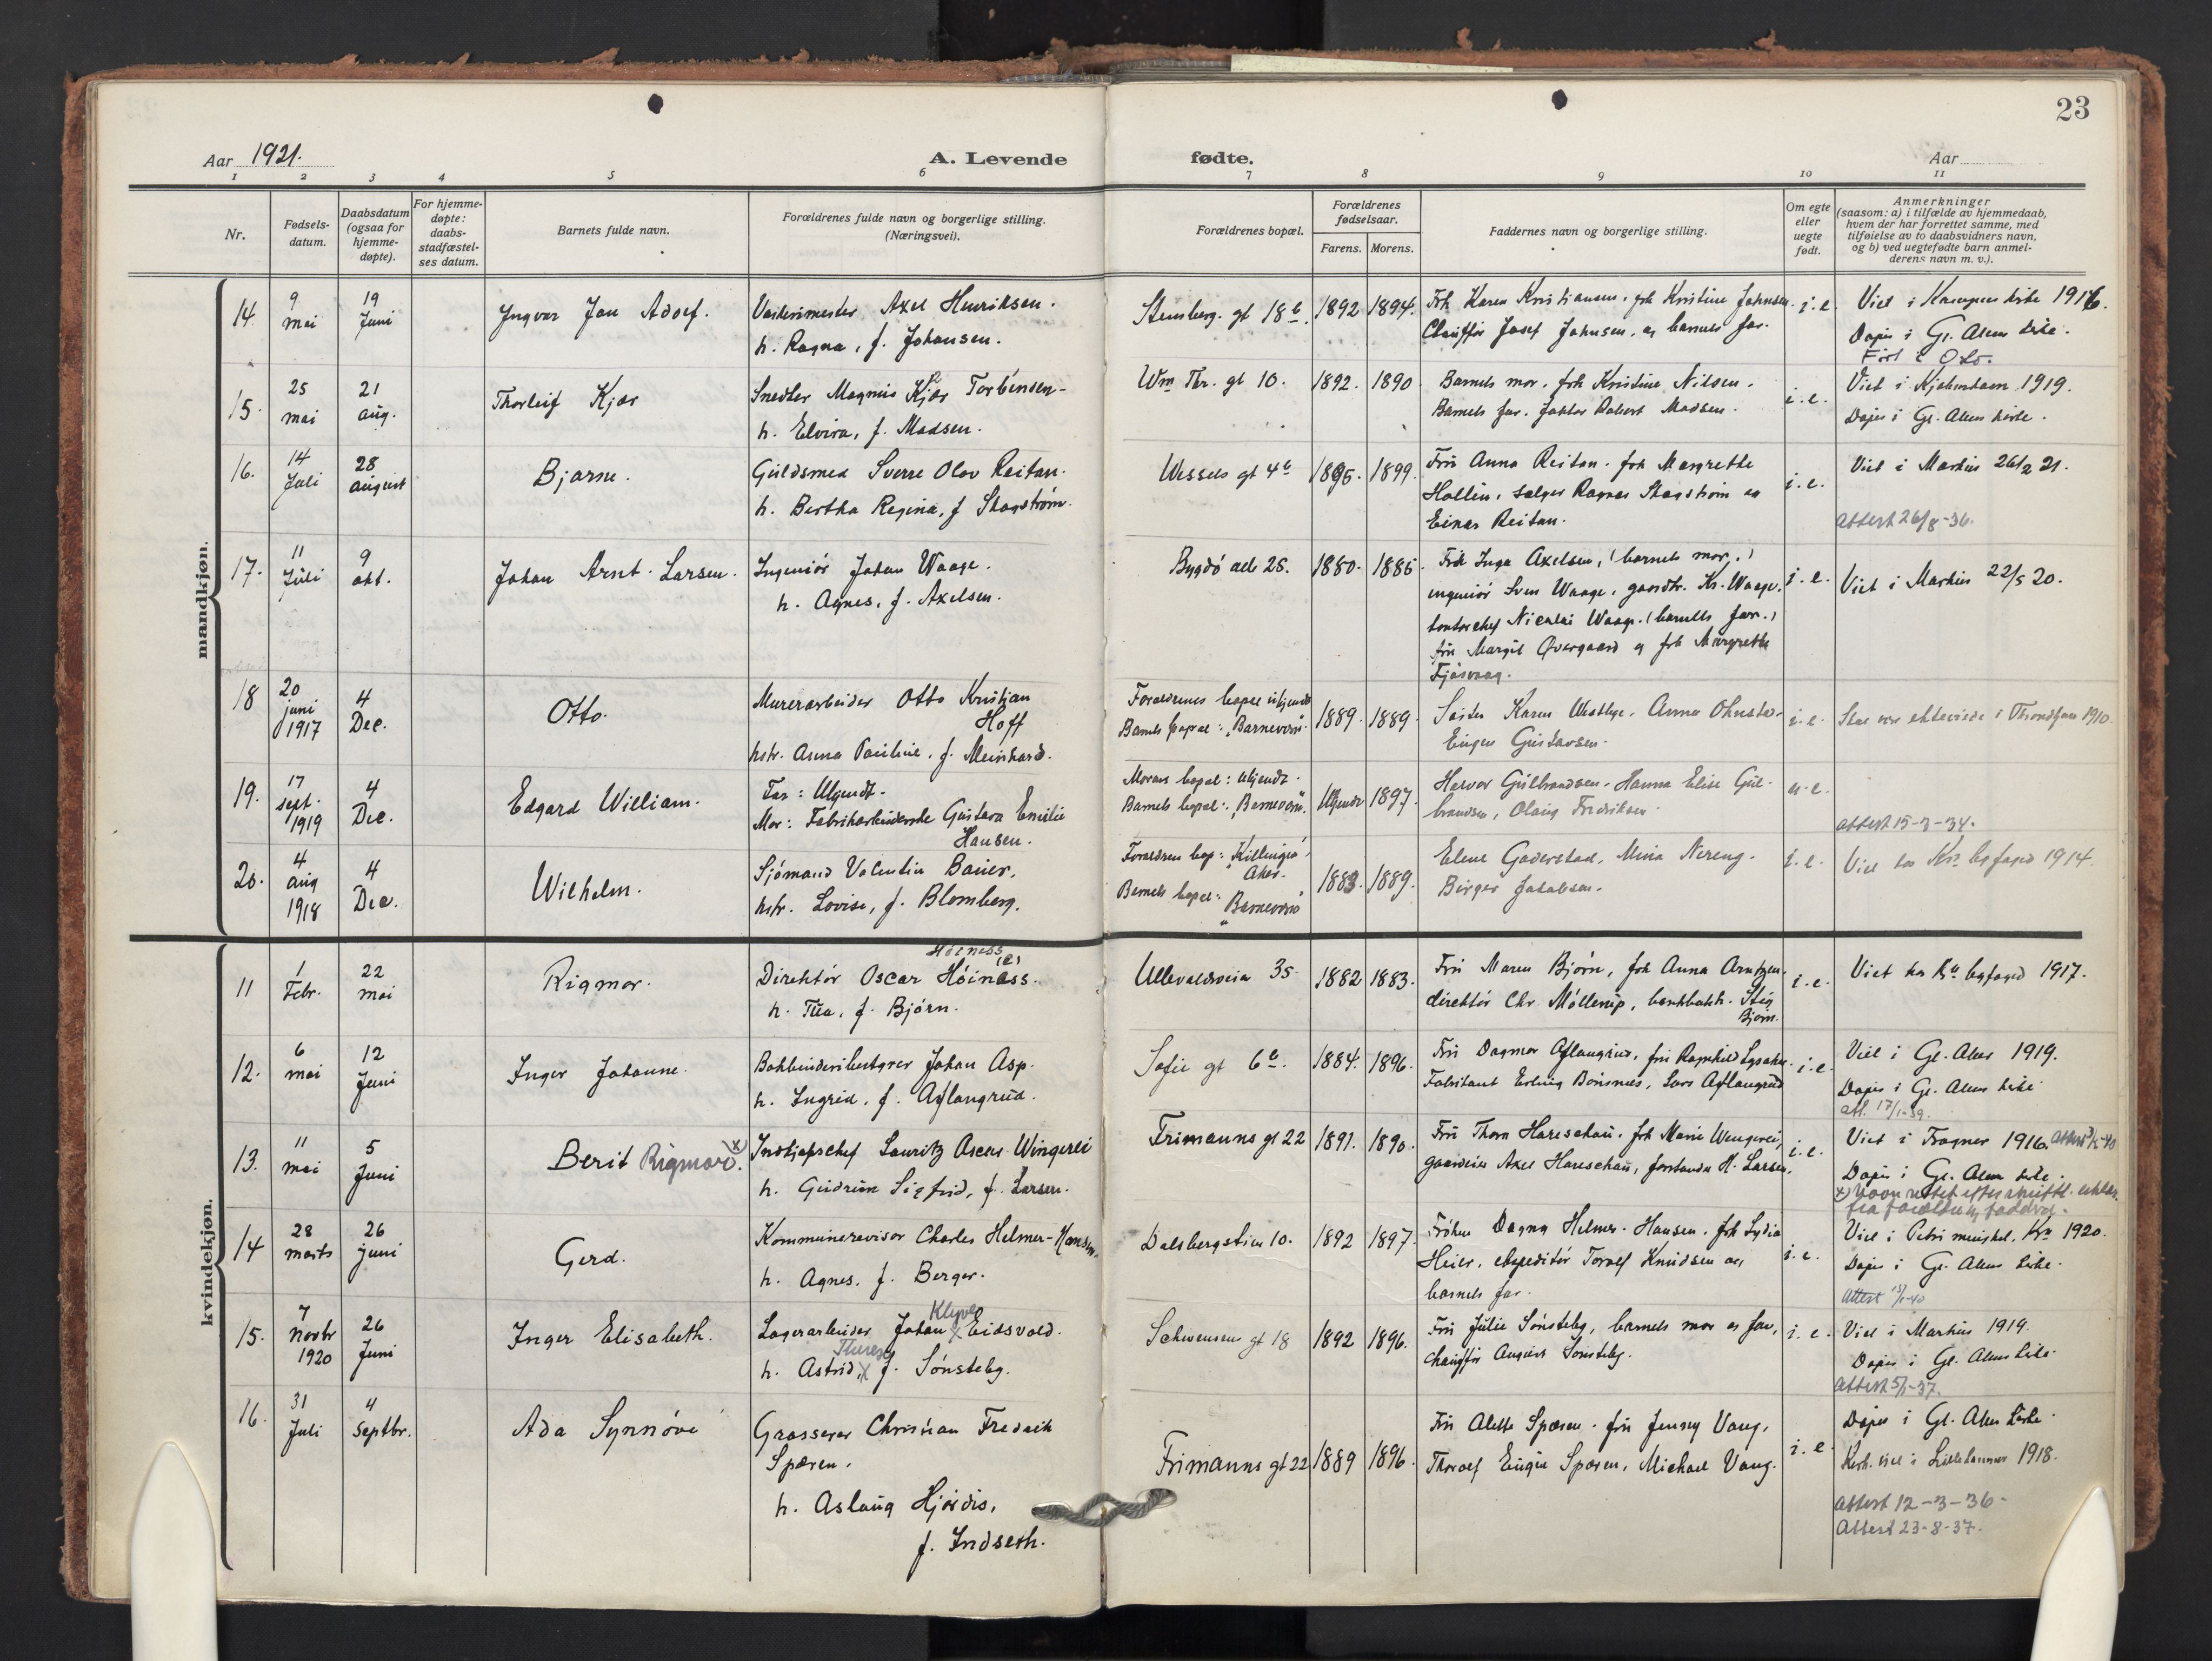 23
Aar 1921.
A. Levende fødte.
Aar
1 2 3 4 5 6 7 8 9 10 11
Nr.
Fødsels-
datum.
Daabsdatum
(ogsaa for
hjemme-
døpte).
For hjemme-
døpte:
daabs-
stadfæstel-
ses datum.
Barnets fulde navn.
Forældrenes fulde navn og borgerlige stilling.
(Næringsvei).
Forældrenes bopæl.
Forældrenes
fødselsaar.
Farens. Morens.
Faddernes navn og borgerlige stilling.
Om egte
eller
uegte
født.
Anmerkninger
(saasom: a) i tilfælde av hjemmedaab,
hvem der har forrettet samme, med
tilføielse av to daabsvidners navn,
og b) ved uegtefødte barn anmel-
derens navn m. v.).
mandkjøn.
14. 9 mai 19 Juni
Ingvar Jan Adolf.
Axel Henriksen.
h. Ragna, f. Johansen.
Stensberg. gt 18 b. 1892 1894.
Frk Karen Kristiansen, frk Kristine Johnsen.
Chauffør Josef Johnsen, og barnets far.
i. e.
Viet i Kampen kirke 1916.
Døpt i Gl. Aker kirke.
Ført i Oslo.
15. 25 mai 21 aug.
Thorleif Kjær
Snedker Magnus Kjær Torbensen-
h. Elvira, f. Madsen.
Wm Thr. gt 10. 1892. 1890
Barnets mor, frk Kristine Nilsen.
Barnets far, faktor Robert Madsen.
i. e.
Viet i Kjøbenhavn 1919.
Døpt i Gl. Aker kirke.
16. 14 Juli 28 august
Bjarne.
Guldsmed Sverre Olav Reitan.
h. Bertha Regina, f Skogstrøm.
Wessels gt 4 b 1895. 1899.
Fru Anna Reitan. frk Margrethe
Hollin, sælger Ragnar Skogstrøm og
Einar Reitan.
i. e.
Viet i Markus 26/2 21.
Attest 26/8-36.
17. 11 Juli 9 okt.
Johan Arnt Larsen.
Ingeniør Johan Waage.
h. Agnes, f. Axelsen.
Bygdø allé 25. 1880. 1885.
Frk Inga Axelsen, (barnets mor,)
ingeniør Sven Waage, gaardbr. Kr. Waage,
kontorchef Nicolai Waage. (barnets far.)
fru Margit Overgaard og frk Margrethe
Fjøsvaag.
i. e.
Viet i Markus 22/5 20.
18 20 juni 1917 4 Dec.
Otto.
Murerarbeider Otto Kristjan
Hoff
hstr. Anna Pauline, f. Meinhard.
Forældrenes bopæl ukjendt
Barnets bopæl: "Barnevern". 1889. 1889.
Søster Karen Westbye, Anna
Eugen Gustavsen.
i. e.
Skal være ektevidde i Throndhjem 1910.
19. 17 sept. 1919 4 Dec.
Edgard William.
Far: Ukjendt.
Mor: Fabrikarbeiderske Gustava Emilie
Hansen.
Morens bopæl: ukjendt.
Barnets bopæl: "Barnevern". Ukjendt 1897.
Halvor Gulbrandsen, Hanna Elise Gul-
brandsen, Olaug Fredriksen
u. e.
attest 15-3-34.
20. 4 aug 1918 4 Dec.
Wilhelm.
Sjømand Valentin Baier,
hstr. Lovise, f. Blomberg.
Forældren bop: "Killingen",
Aker.
Barnets bopæl: "Barnevern" 1883. 1889.
Elene Gaderstad, Mina Nereng.
Birger Jakobsen.
i. e.
Viet hos Kra byfoged 1914.
kvindekjøn.
11 1 Febr. 22 mai
Rigmor.
Høiness
Direktør Oscar Høinæss. (e)
h. Tua, f. Bjørn.
Ullevaldsveien 35. 1882 1883.
Fru Maren Bjørn, frk Anna Arntzen.
direktør Chr. Møllerup, bankbokh. Stig
Bjørn.
i. e.
Viet hos Kra byfoged 1917.
12. 6 mai 12 Juni
Inger Johanne.
Bokbinderibestyrer Johan Asp.
h. Ingrid, f. Aflangrud.
Sofie gt 6 b. 1884. 1896.
Fru Dagmar Aflangrud, fru Ragnhild Lysaker.
Fabrikant Erling Bonsnes, Lars Aflangrud
i. e.
Viet i Gl. Aker 1919.
Døpt i Gl. Aker kirke.
att. 17/1-39.
13. 11 mai 5 Juni
Berit Rigmor x).
Indkjøpschef Lauritz Oscar Wingerei
h. Gudrun Sigfrid, f. Larsen.
Frimanns gt 22 1891. 1890.
Fru Thora Hareschau, frk Marie Wengerei,
gaardeier Axel Hareschau, forstander H. Larsen.
i. e.
Viet i Frogner 1916.
Døpt i Gl. Aker kirke.
x) Navn rettet efter skriftl. erklær.
fra forældre og faddre.
14 28 marts 26 juni
Gerd.
Kommunerevisor Charles Helmer-Hansen.
h. Agnes, f. Berger.
Dalsbergstien 10. 1892 1897.
Frøken Dagny Helmer-Hansen, frk Lydia
Heier, ekspeditør Toralf Knudsen og
barnets far.
i. e.
Viet i Petri menighet, Kra 1920.
Døpt i Gl. Aker kirke.
Attest
15. 7 Novbr 1920 26 Juni
Inger Elisabeth.
Klyve
Lagerarbeider Johan x Eidsvold.
Therese
h. Astrid, x f. Sønsteby.
Schwensens gt 18 1892 1896.
Fru Julie Sønsteby, barnets mor og far,
chauffør August Sønsteby.
i. e.
Viet i Markus 1919.
Døpt i Gl. Aker kirke.
Attest 5/1-37.
16. 31 Juli 4 Septbr.
Ada Synnøve
Grosserer Christian Fredrik
Spæren.
h. Aslaug Hjørdis,
f. Indseth.
Frimanns gt 22 1889 1896.
Fru Alette Spæren. fru Jenny Vang,
Thoralf Eugen Spæren, Michael Vang.
i. e.
Døpt i Gl. Aker kirke.
Kirk. viet i Lillehammer 1918.
Attest 12-3-36-
Attest 23-8-37.